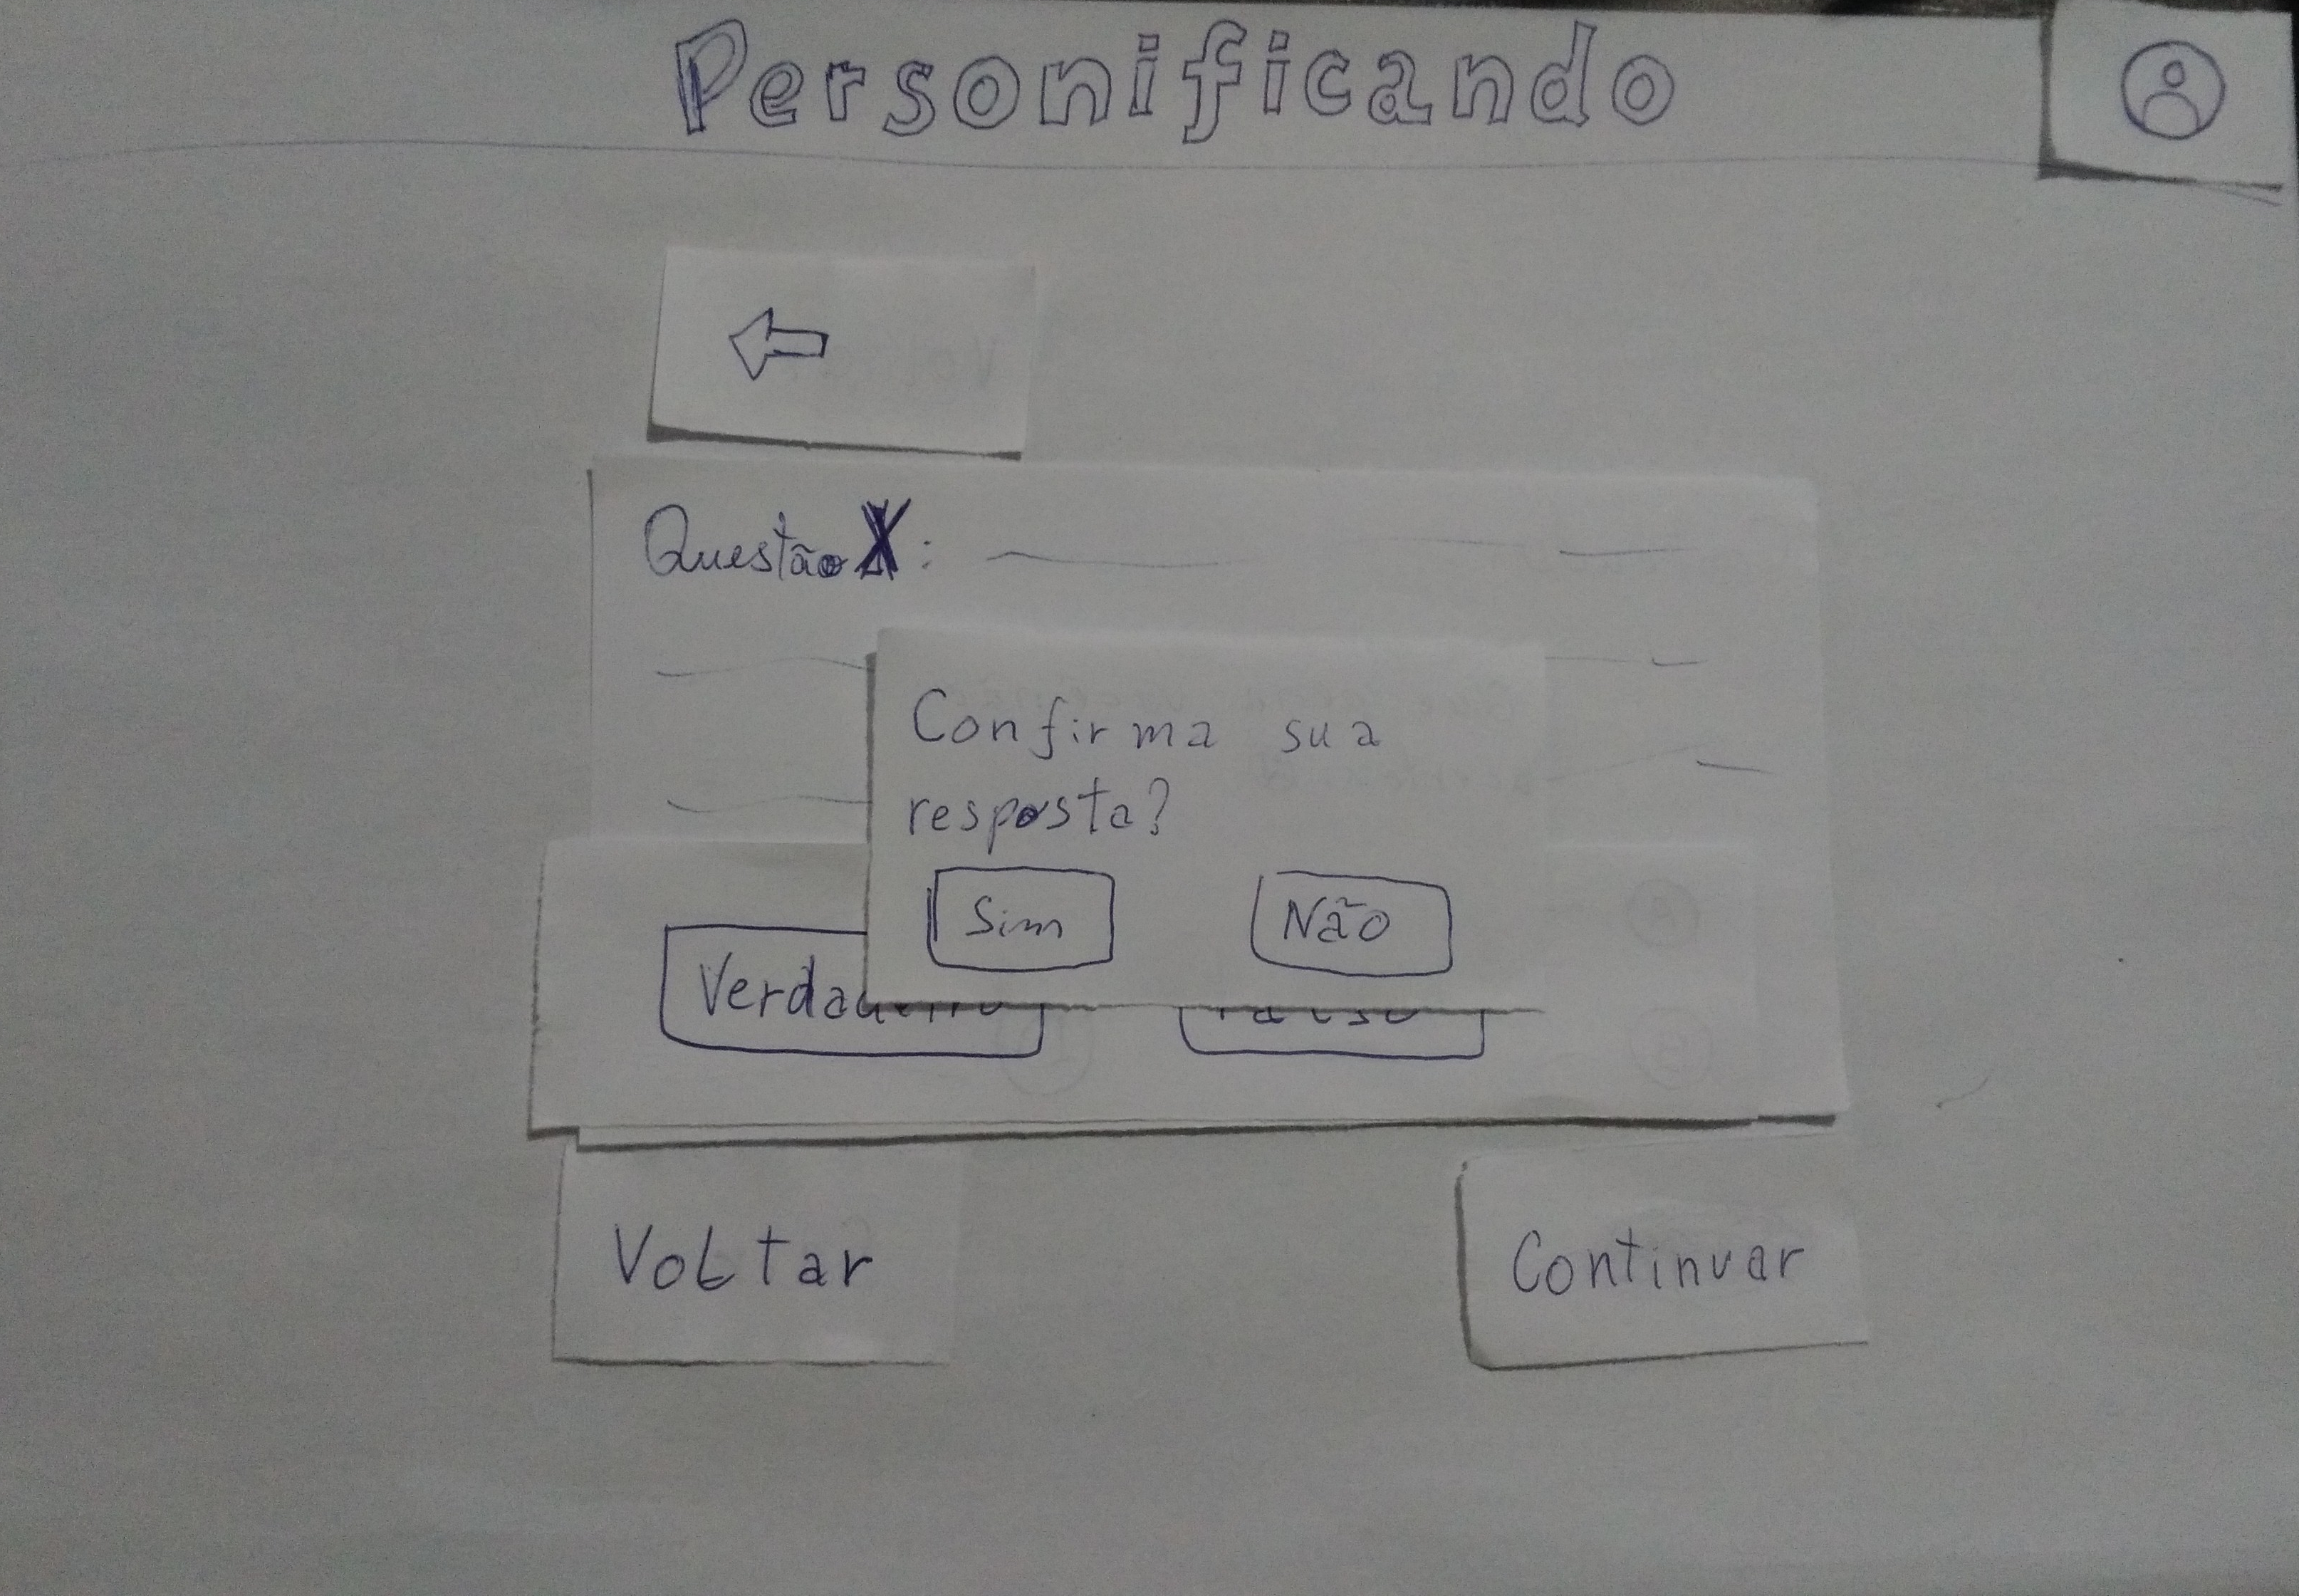 Personificando
Questão X:
Confirma sua
resposta?
Sim Não
Voltar Continuar